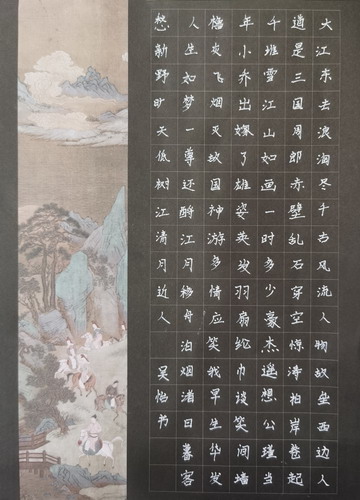 大江东去浪淘尽千古风流人物故垒西边人
道是三国周郎赤壁乱石穿空惊涛拍岸卷起
千堆雪江山如画一时多少豪杰遥想公瑾当
年小乔出嫁了雄姿英发羽扇纶巾谈笑间墙
橹灰飞烟灭故国神游多情应笑我早生华发
人生如梦一尊还酹江月移舟泊烟渚日暮客
愁新野旷天低树江清月近人 吴书